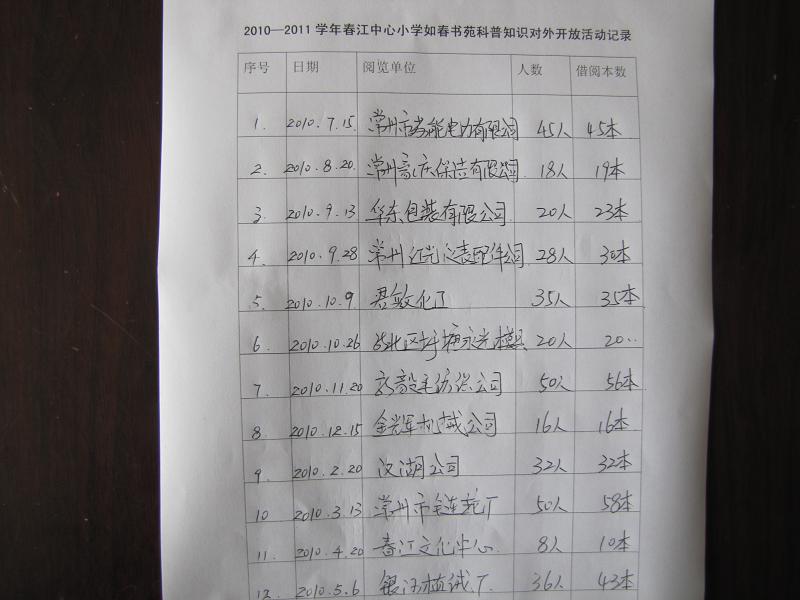 2010—2011学年春江中心小学如春书苑科普知识对外开放活动记录
序号 日期 阅览单位 人数 借阅本数
1. 2010.7.15 常州市 能电力有限公司 45人 45本
2. 2010.8.20. 常州 庆保洁有限公司 18人 19本
3. 2010.9.13 华东包装有限公司. 20人 23本
4. 2010.9.28 常州江光仪表配件公司 28人 30本
5. 2010.10.9 君敏化工 35人 35本
6. 2010.10.26 北区圩塘永光模具 20人 20..
7. 2010.11.20 新毅毛纺织公司 50人 56本
8. 2010.12.15 金辉机械公司 16人 16本
9. 2010.2.20 汉湖公司 32人 32本
10 2010.3.13 常州市 厂 50人 58本
11. 2010.4.20 春江文化中心. 8人 10本
12. 2010.5.6 银河植绒厂. 36人 43本